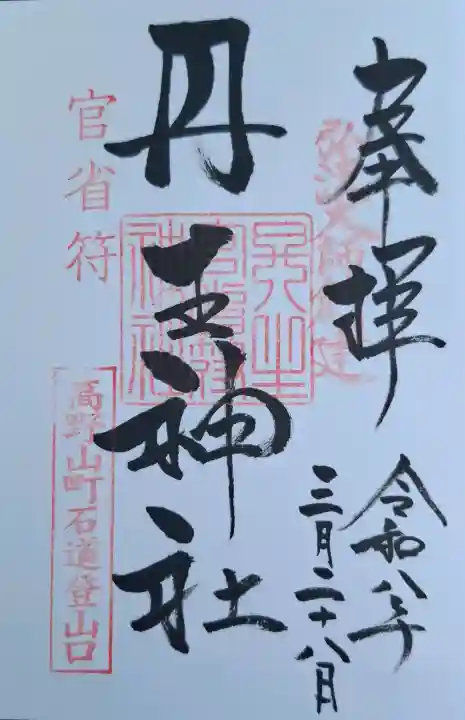 奉拝
弘法大師創建
令和八年
三月二十八日
丹生神社
官省符
高野山町石道登山口